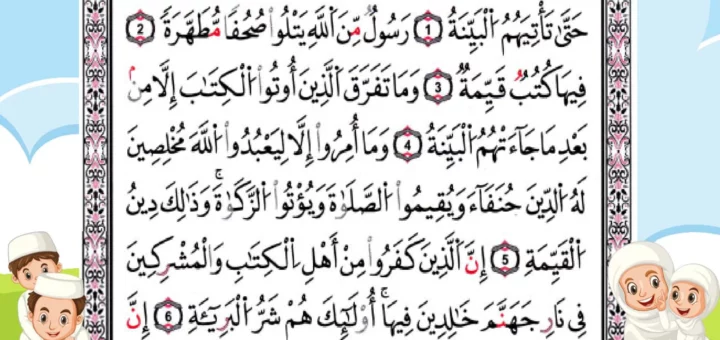 حَتَّىٰ تَأْتِيَهُمُ الْبَيِّنَةُ ۝1 رَسُولٌ مِّنَ اللَّهِ يَتْلُوا صُحُفًا مُّطَهَّرَةً ۝2
فِيهَا كُتُبٌ قَيِّمَةٌ ۝3 وَمَا تَفَرَّقَ الَّذِينَ أُوتُوا الْكِتَابَ إِلَّا مِنۢ
بَعْدِ مَا جَاءَتْهُمُ الْبَيِّنَةُ ۝4 وَمَا أُمِرُوا إِلَّا لِيَعْبُدُوا اللَّهَ مُخْلِصِينَ
لَهُ الدِّينَ حُنَفَاءَ وَيُقِيمُوا الصَّلَوٰةَ وَيُؤْتُوا الزَّكَوٰةَ ۚ وَذَٰلِكَ دِينُ
الْقَيِّمَةِ ۝5 إِنَّ الَّذِينَ كَفَرُوا مِنْ أَهْلِ الْكِتَابِ وَالْمُشْرِكِينَ
فِي نَارِ جَهَنَّمَ خَالِدِينَ فِيهَا ۚ أُولَٰئِكَ هُمْ شَرُّ الْبَرِيئَةِ ۝6 إِنَّ